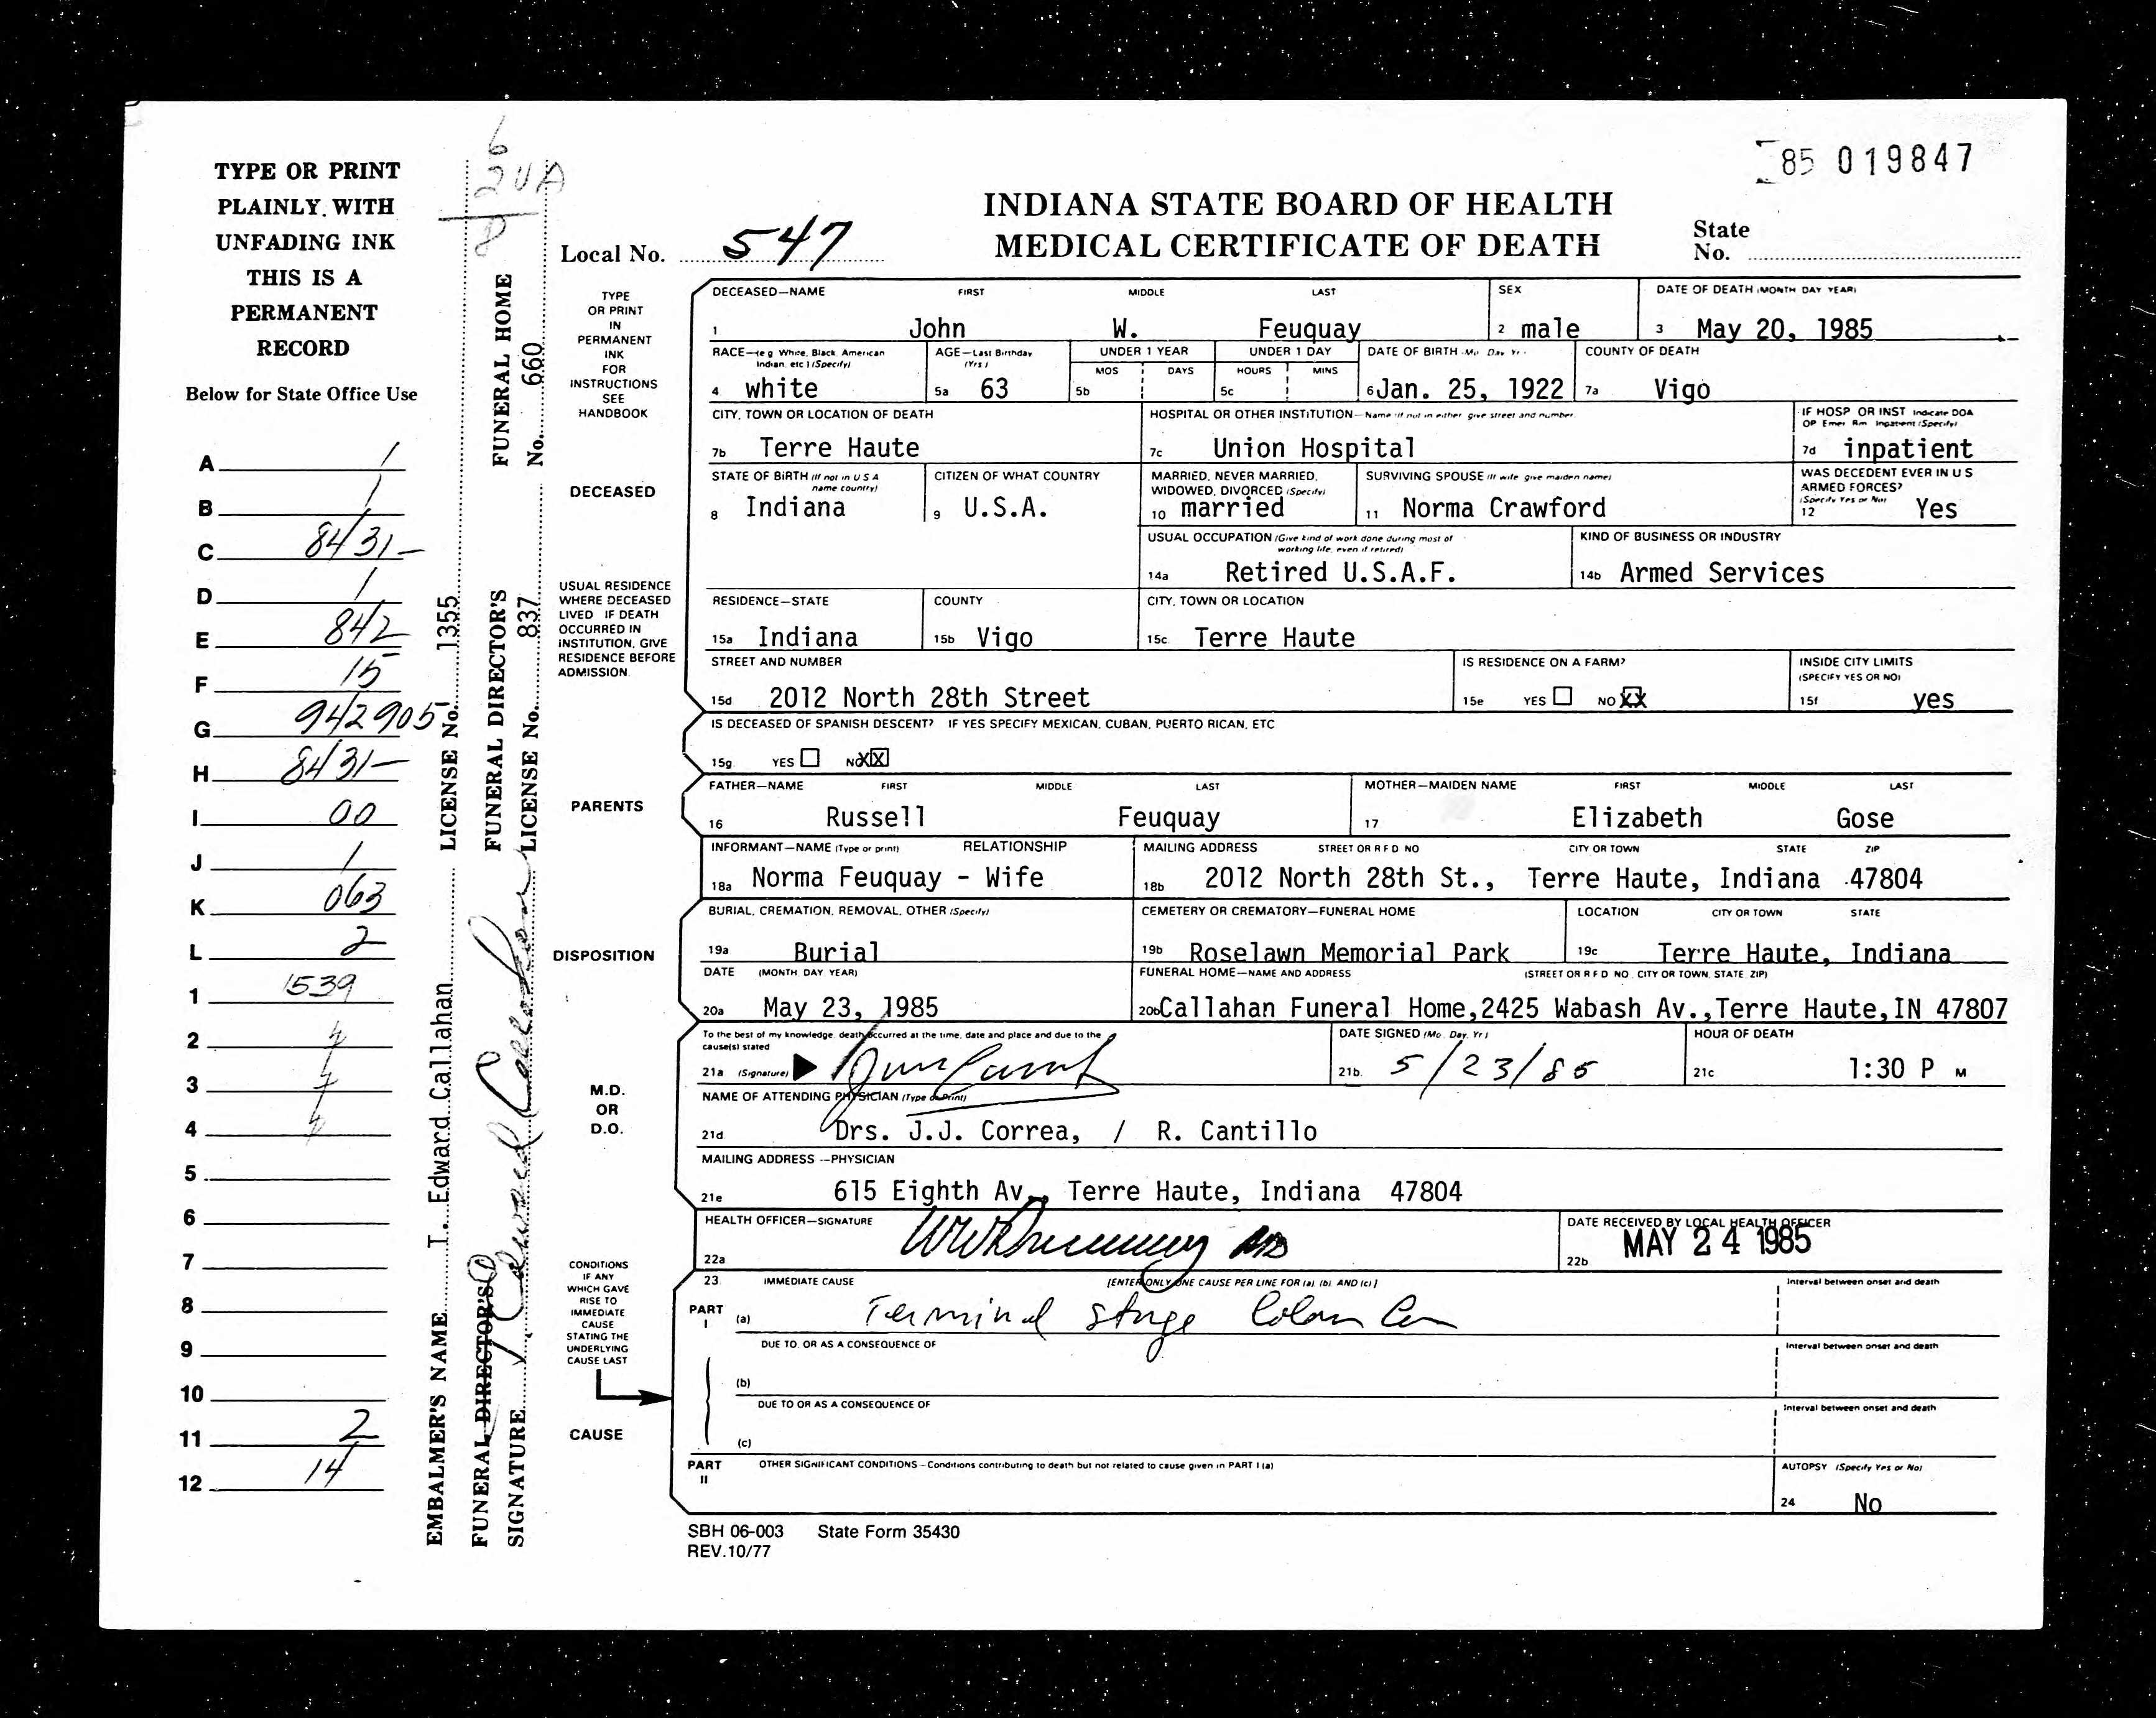 85 019847
TYPE OR PRINT
PLAINLY WITH
UNFADING INK
THIS IS A
PERMANENT
RECORD
Below for State Office Use
A 1
B 1
C 8431-
D 1
E 842
F 15
G 942905
H 8431-
I 00
J 1
K 063
L 2
1 1539
2
3
4
5
6
7
8
9
10
11 2
12 14
EMBALMER'S NAME I. Edward Callahan LICENSE No. 1355
FUNERAL DIRECTOR'S FUNERAL DIRECTOR'S FUNERAL HOME
SIGNATURE LICENSE No. 837 No. 660
INDIANA STATE BOARD OF HEALTH
MEDICAL CERTIFICATE OF DEATH
Local No. 547
State
No.
TYPE
OR PRINT
IN
PERMANENT
INK
FOR
INSTRUCTIONS
SEE
HANDBOOK
DECEASED—NAME FIRST MIDDLE LAST SEX DATE OF DEATH (MONTH DAY YEAR)
1 John W. Feuquay 2 male 3 May 20, 1985
RACE—(e g White, Black, American Indian, etc) (Specify) AGE—Last Birthday (Yrs) UNDER 1 YEAR UNDER 1 DAY DATE OF BIRTH (Mo Day Yr) COUNTY OF DEATH
MOS DAYS HOURS MINS
4 white 5a 63 5b 5c 6 Jan. 25, 1922 7a Vigo
CITY, TOWN OR LOCATION OF DEATH HOSPITAL OR OTHER INSTITUTION—Name (If not in either give street and number) IF HOSP OR INST Indicate DOA OP Emer Rm Inpatient (Specify)
7b Terre Haute 7c Union Hospital 7d inpatient
DECEASED
STATE OF BIRTH (If not in U S A name country) CITIZEN OF WHAT COUNTRY MARRIED, NEVER MARRIED, WIDOWED, DIVORCED (Specify) SURVIVING SPOUSE (If wife give maiden name) WAS DECEDENT EVER IN U S ARMED FORCES? (Specify Yes or No)
8 Indiana 9 U.S.A. 10 married 11 Norma Crawford 12 Yes
USUAL OCCUPATION (Give kind of work done during most of working life, even if retired) KIND OF BUSINESS OR INDUSTRY
14a Retired U.S.A.F. 14b Armed Services
USUAL RESIDENCE
WHERE DECEASED
LIVED IF DEATH
OCCURRED IN
INSTITUTION, GIVE
RESIDENCE BEFORE
ADMISSION
RESIDENCE—STATE COUNTY CITY, TOWN OR LOCATION
15a Indiana 15b Vigo 15c Terre Haute
STREET AND NUMBER IS RESIDENCE ON A FARM? INSIDE CITY LIMITS (SPECIFY YES OR NO)
15d 2012 North 28th Street 15e YES NO XX 15f yes
IS DECEASED OF SPANISH DESCENT? IF YES SPECIFY MEXICAN, CUBAN, PUERTO RICAN, ETC
15g YES NO XX
PARENTS
FATHER—NAME FIRST MIDDLE LAST MOTHER—MAIDEN NAME FIRST MIDDLE LAST
16 Russell Feuquay 17 Elizabeth Gose
INFORMANT—NAME (Type or print) RELATIONSHIP MAILING ADDRESS STREET OR R F D NO CITY OR TOWN STATE ZIP
18a Norma Feuquay - Wife 18b 2012 North 28th St., Terre Haute, Indiana 47804
DISPOSITION
BURIAL, CREMATION, REMOVAL, OTHER (Specify) CEMETERY OR CREMATORY—FUNERAL HOME LOCATION CITY OR TOWN STATE
19a Burial 19b Roselawn Memorial Park 19c Terre Haute, Indiana
DATE (MONTH DAY YEAR) FUNERAL HOME—NAME AND ADDRESS (STREET OR R F D NO. CITY OR TOWN, STATE, ZIP)
20a May 23, 1985 20b Callahan Funeral Home,2425 Wabash Av.,Terre Haute,IN 47807
To the best of my knowledge, death occurred at the time, date and place and due to the cause(s) stated DATE SIGNED (Mo. Day, Yr) HOUR OF DEATH
21a (Signature) 21b. 5/23/85 21c 1:30 P M
M.D.
OR
D.O.
NAME OF ATTENDING PHYSICIAN (Type or Print)
21d Drs. J.J. Correa, / R. Cantillo
MAILING ADDRESS—PHYSICIAN
21e 615 Eighth Av., Terre Haute, Indiana 47804
HEALTH OFFICER—SIGNATURE DATE RECEIVED BY LOCAL HEALTH OFFICER
22a MD 22b MAY 24 1985
CONDITIONS
IF ANY
WHICH GAVE
RISE TO
IMMEDIATE
CAUSE
STATING THE
UNDERLYING
CAUSE LAST
CAUSE
23. IMMEDIATE CAUSE [ENTER ONLY ONE CAUSE PER LINE FOR (a), (b), AND (c)] Interval between onset and death
PART I (a) Terminal stage Colon Ca
DUE TO, OR AS A CONSEQUENCE OF Interval between onset and death
(b)
DUE TO OR AS A CONSEQUENCE OF Interval between onset and death
(c)
PART II OTHER SIGNIFICANT CONDITIONS—Conditions contributing to death but not related to cause given in PART I (a) AUTOPSY (Specify Yes or No)
24 No
SBH 06-003 State Form 35430
REV.10/77